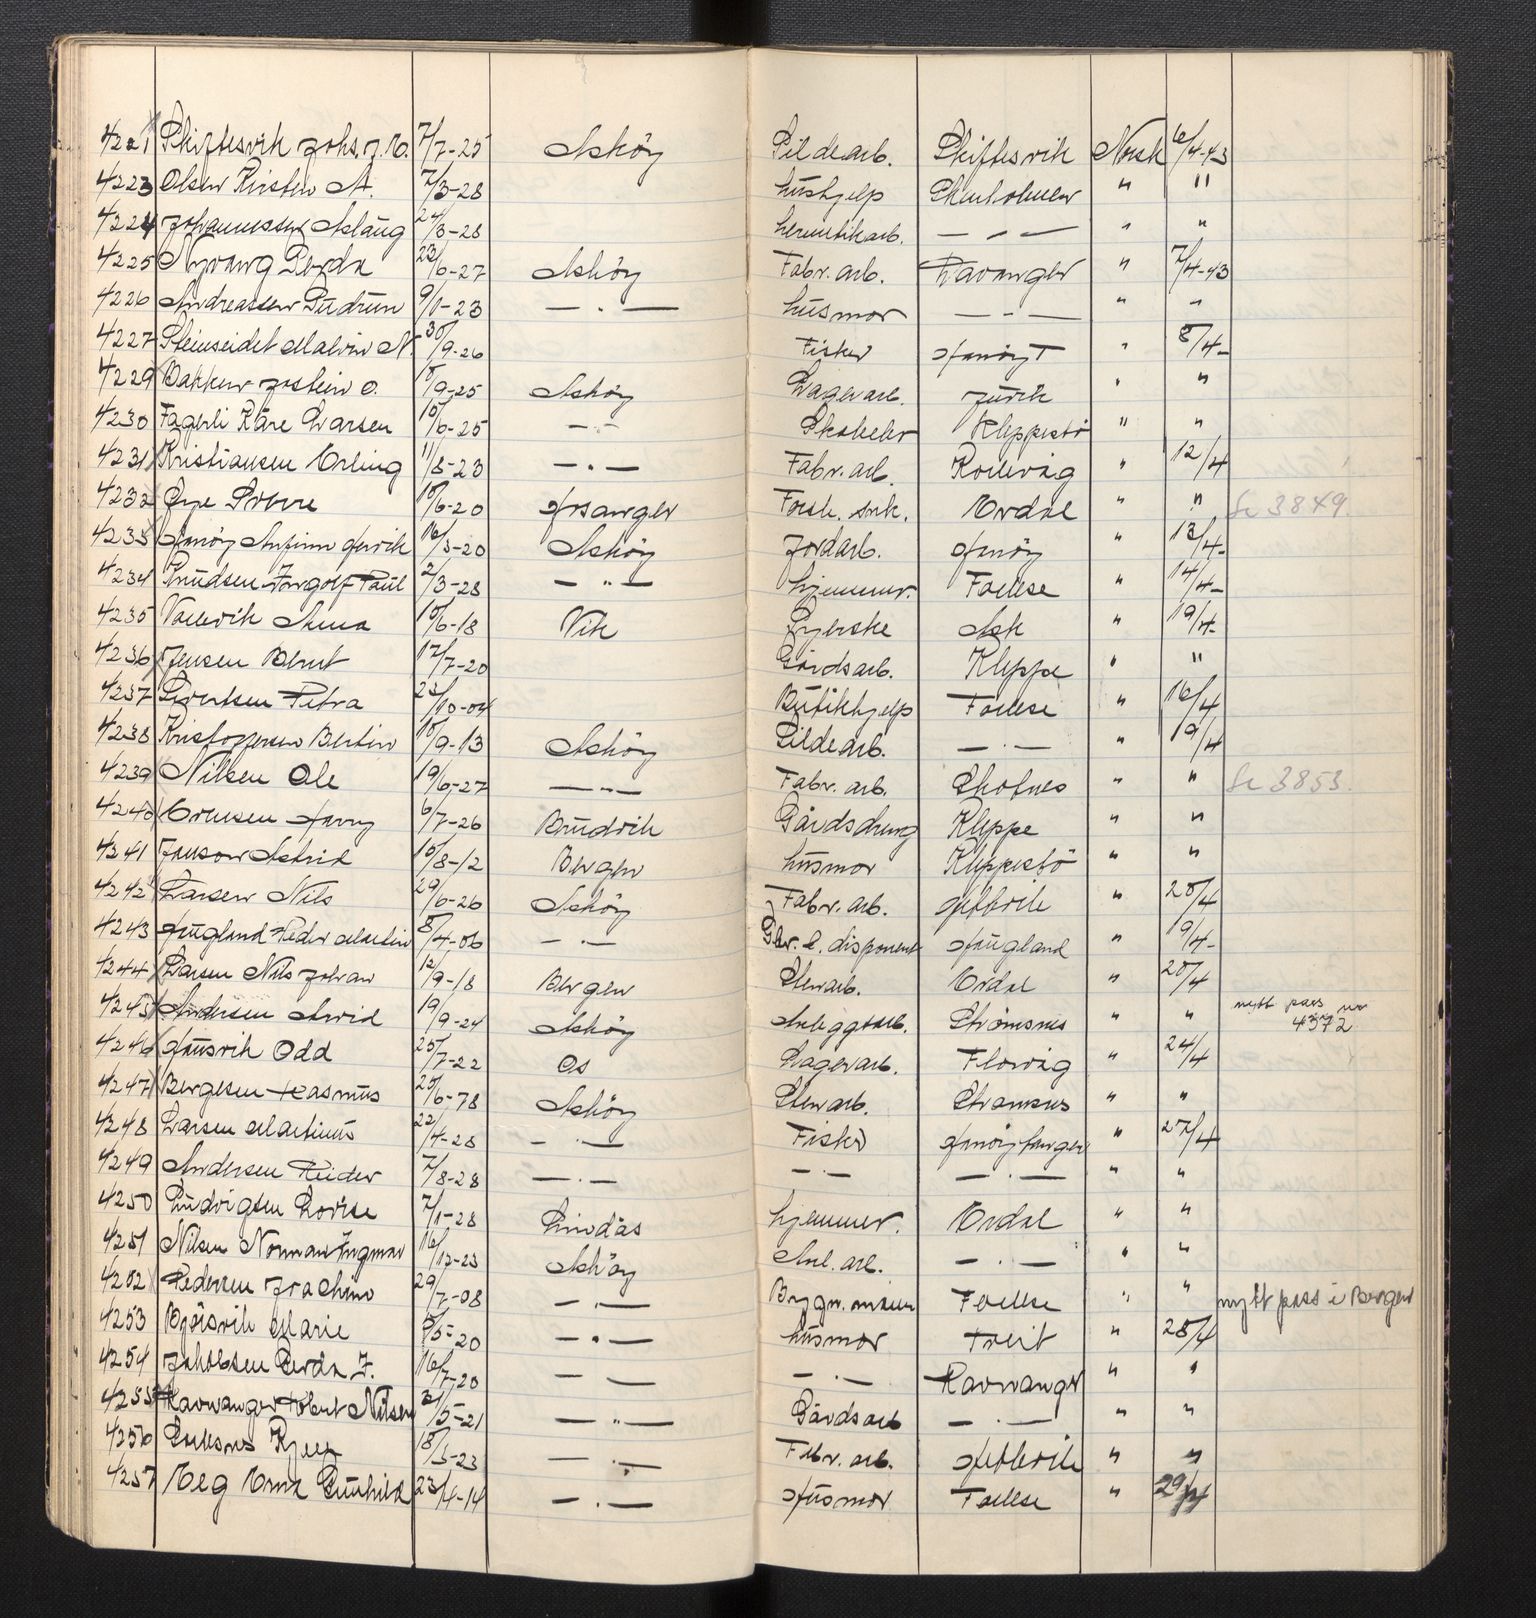 4221 Skiftesvik Johs. J. O. 7/7-25 Askøy Sildearb. Skiftesvik Norsk 6/4-43
4223 Olsen Kirsten A. 7/3-28 hushjelp Skarholmen " "
4224 Johannessen Aslaug 24/3-28 hermetikarb. — " — " "
4225 Nyvang Gerda 23/6-27 Askøy Fabr. arb. Ravanger " 7/4-43
4226 Andreassen Gudrun 9/1-23 — " — husmor — " — " "
4227 Steinseidet Malvin N. 30/9-26 Fisker Hanøyt " 8/4-
4229 Bakken Jostein O. 15/9-25 Askøy Lagerarb. Juvik " "
4230 Fagerli Kåre Larsen 15/6-25 — " — Skoelev Kleppestö " "
4231 Kristiansen Erling 11/8-23 — " — Fabr. arb. Follevåg " 12/4
4232 Sverre 15/6-20 Årsanger Forsk. Erdal " " Se 3849.
4233 Hanøy Anfinn Henrik 16/3-20 Askøy Jordarb. Hanöy " 13/4-
4234 Knudsen Ingolf Paul 2/3-28 — " — hjemmev. Follese " 14/4-
4235 Vallevik Anna 15/6-18 Vik Syerske Ask " 19/4-
4236 Jensen Bernt 17/7-20 Gårdsarb. Kleppe " "
4237 Sivertsen Petra 23/10-04 Butikkhjelp Follese " 16/4
4238 Kristoffersen Bertin 15/9-13 Askøy Sildearb. — " — " 19/4
4239 Nilsen Ole 19/6-27 — " — Fabr. arb. Skotnes " " Se 3853.
4240 Ernesen Harry 6/7-26 Bruvik Gårdsdreng Kleppe " "
4241 Janson Astrid 15/8-12 Bergen husmor Kleppestö " "
4242 Larsen Nils 29/6-26 Askøy Fabr. arb. Hetlevik " 20/4
4243 Haugland Peder Martin 8/4-06 — " — disponent Haugland " 19/4-
4244 Larsen Nils Johan 12/9-18 Bergen Stenarb. Erdal " 20/4
4245 Andersen Arvid 19/9-24 Askøy Anleggsarb. Strömsnes " " nytt pass nr 4372
4246 Hausvik Odd 25/7-22 Os Lagerarb. Florvåg " 24/4
4247 Bergesen Rasmus 25/6-78 Askøy Stenarb. Stramsnes " "
4248 Larsen Martinus 22/4-28 — " — Fisker Hanøytangen " 27/4
4249 Andersen Reidar 7/8-28 — " — — " — — " — " "
4250 Ludvigsen Lovise 7/1-28 Lindås hjemmev. Erdal " "
4251 Nilsen Norman Ingmar 16/12-23 Askøy Anl. arb. — " — " "
4252 Pedersen Joachim 29/7-08 — " — Follese " " nytt pass i Bergen
4253 Björsvik Marie 5/5-20 — " — husmor Treit " 28/4
4254 Jakobsen Gerda J. 16/7-20 — " — — " — Ravnanger " "
4255 Ravnanger Robert Nilsen 31/5-21 — " — Gårdsarb — " — " "
4256 Kjell 18/3-23 — " — Fabr. arb. Hetlevik " "
4257 Gunhild 23/4-14 — " — Husmor Follese " 29/4